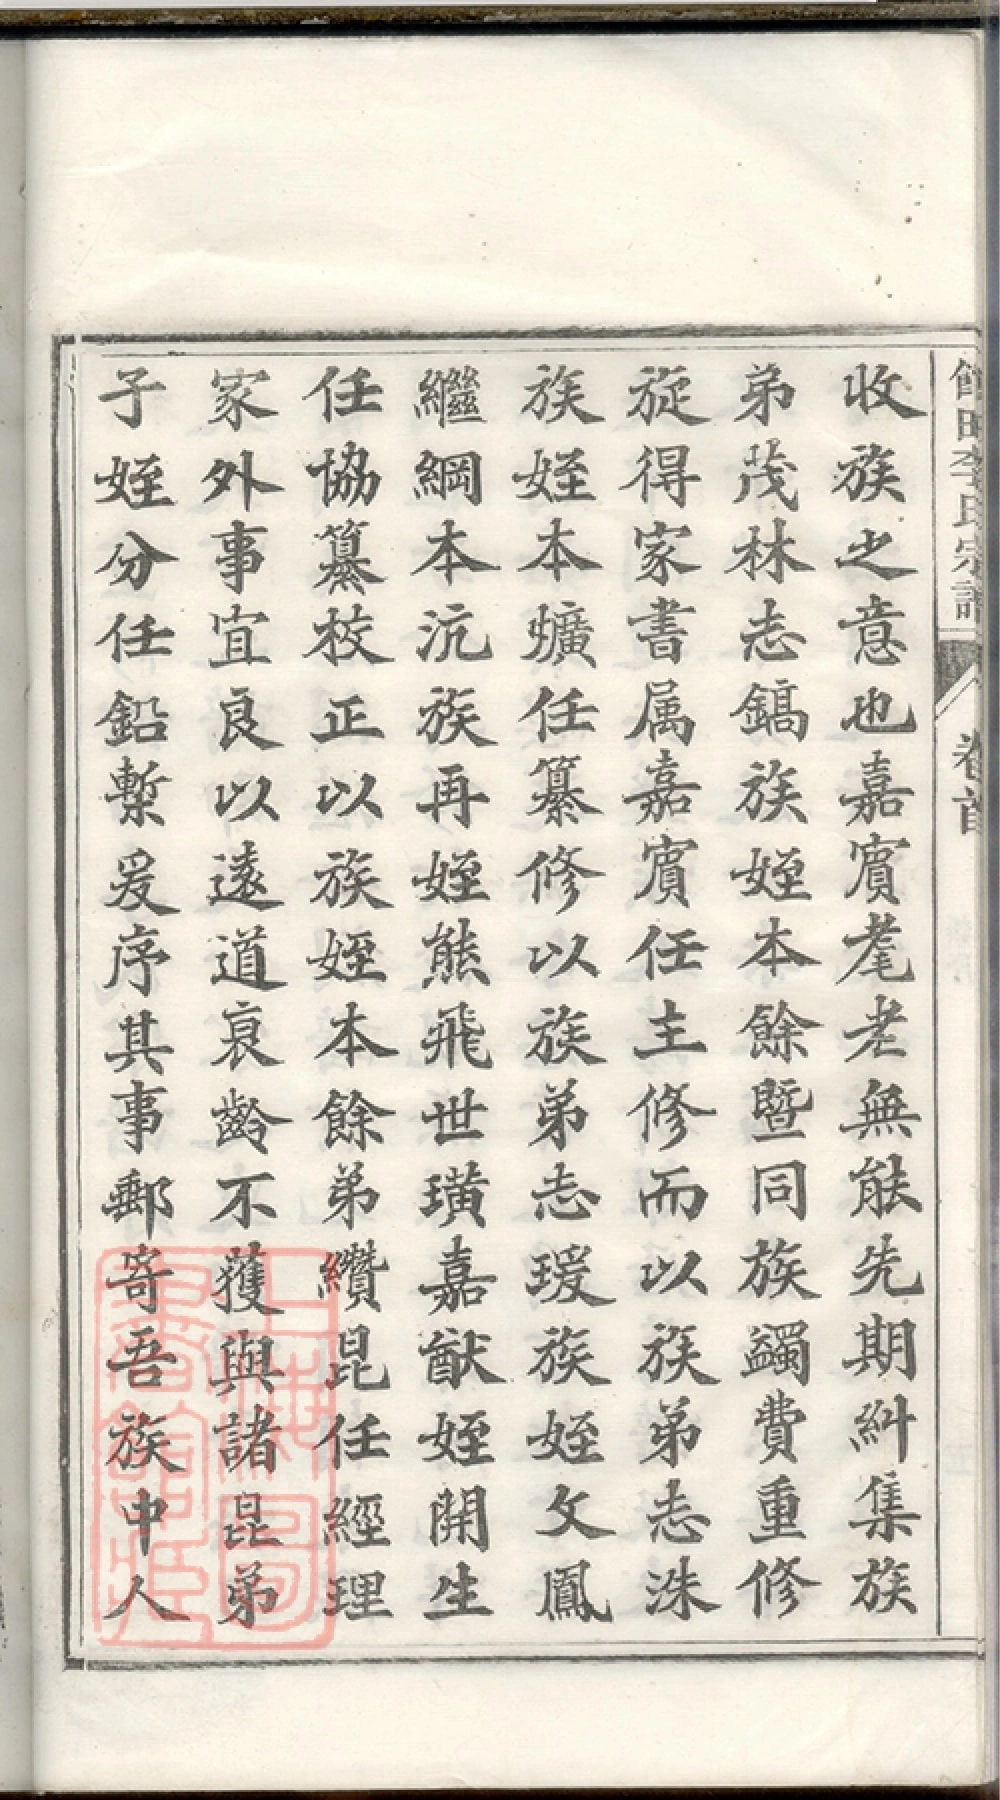 李氏宗譜 卷首
收族之意也嘉賓耄老無能先期糾集族
弟茂林志鎬族姪本餘暨同族蠲費重修
旋得家書属嘉賓任主修而以族弟志洙
族姪本爌任纂修以族弟志瑗族姪文鳳
繼綱本沆族再姪熊飛世璜嘉猷姪開生
任協纂校正以族姪本餘弟纘昆任經理
家外事宜良以遠道衰齡不獲與諸昆弟
子姪分任鉛槧爰序其事郵寄吾族中人
上海圖書館藏